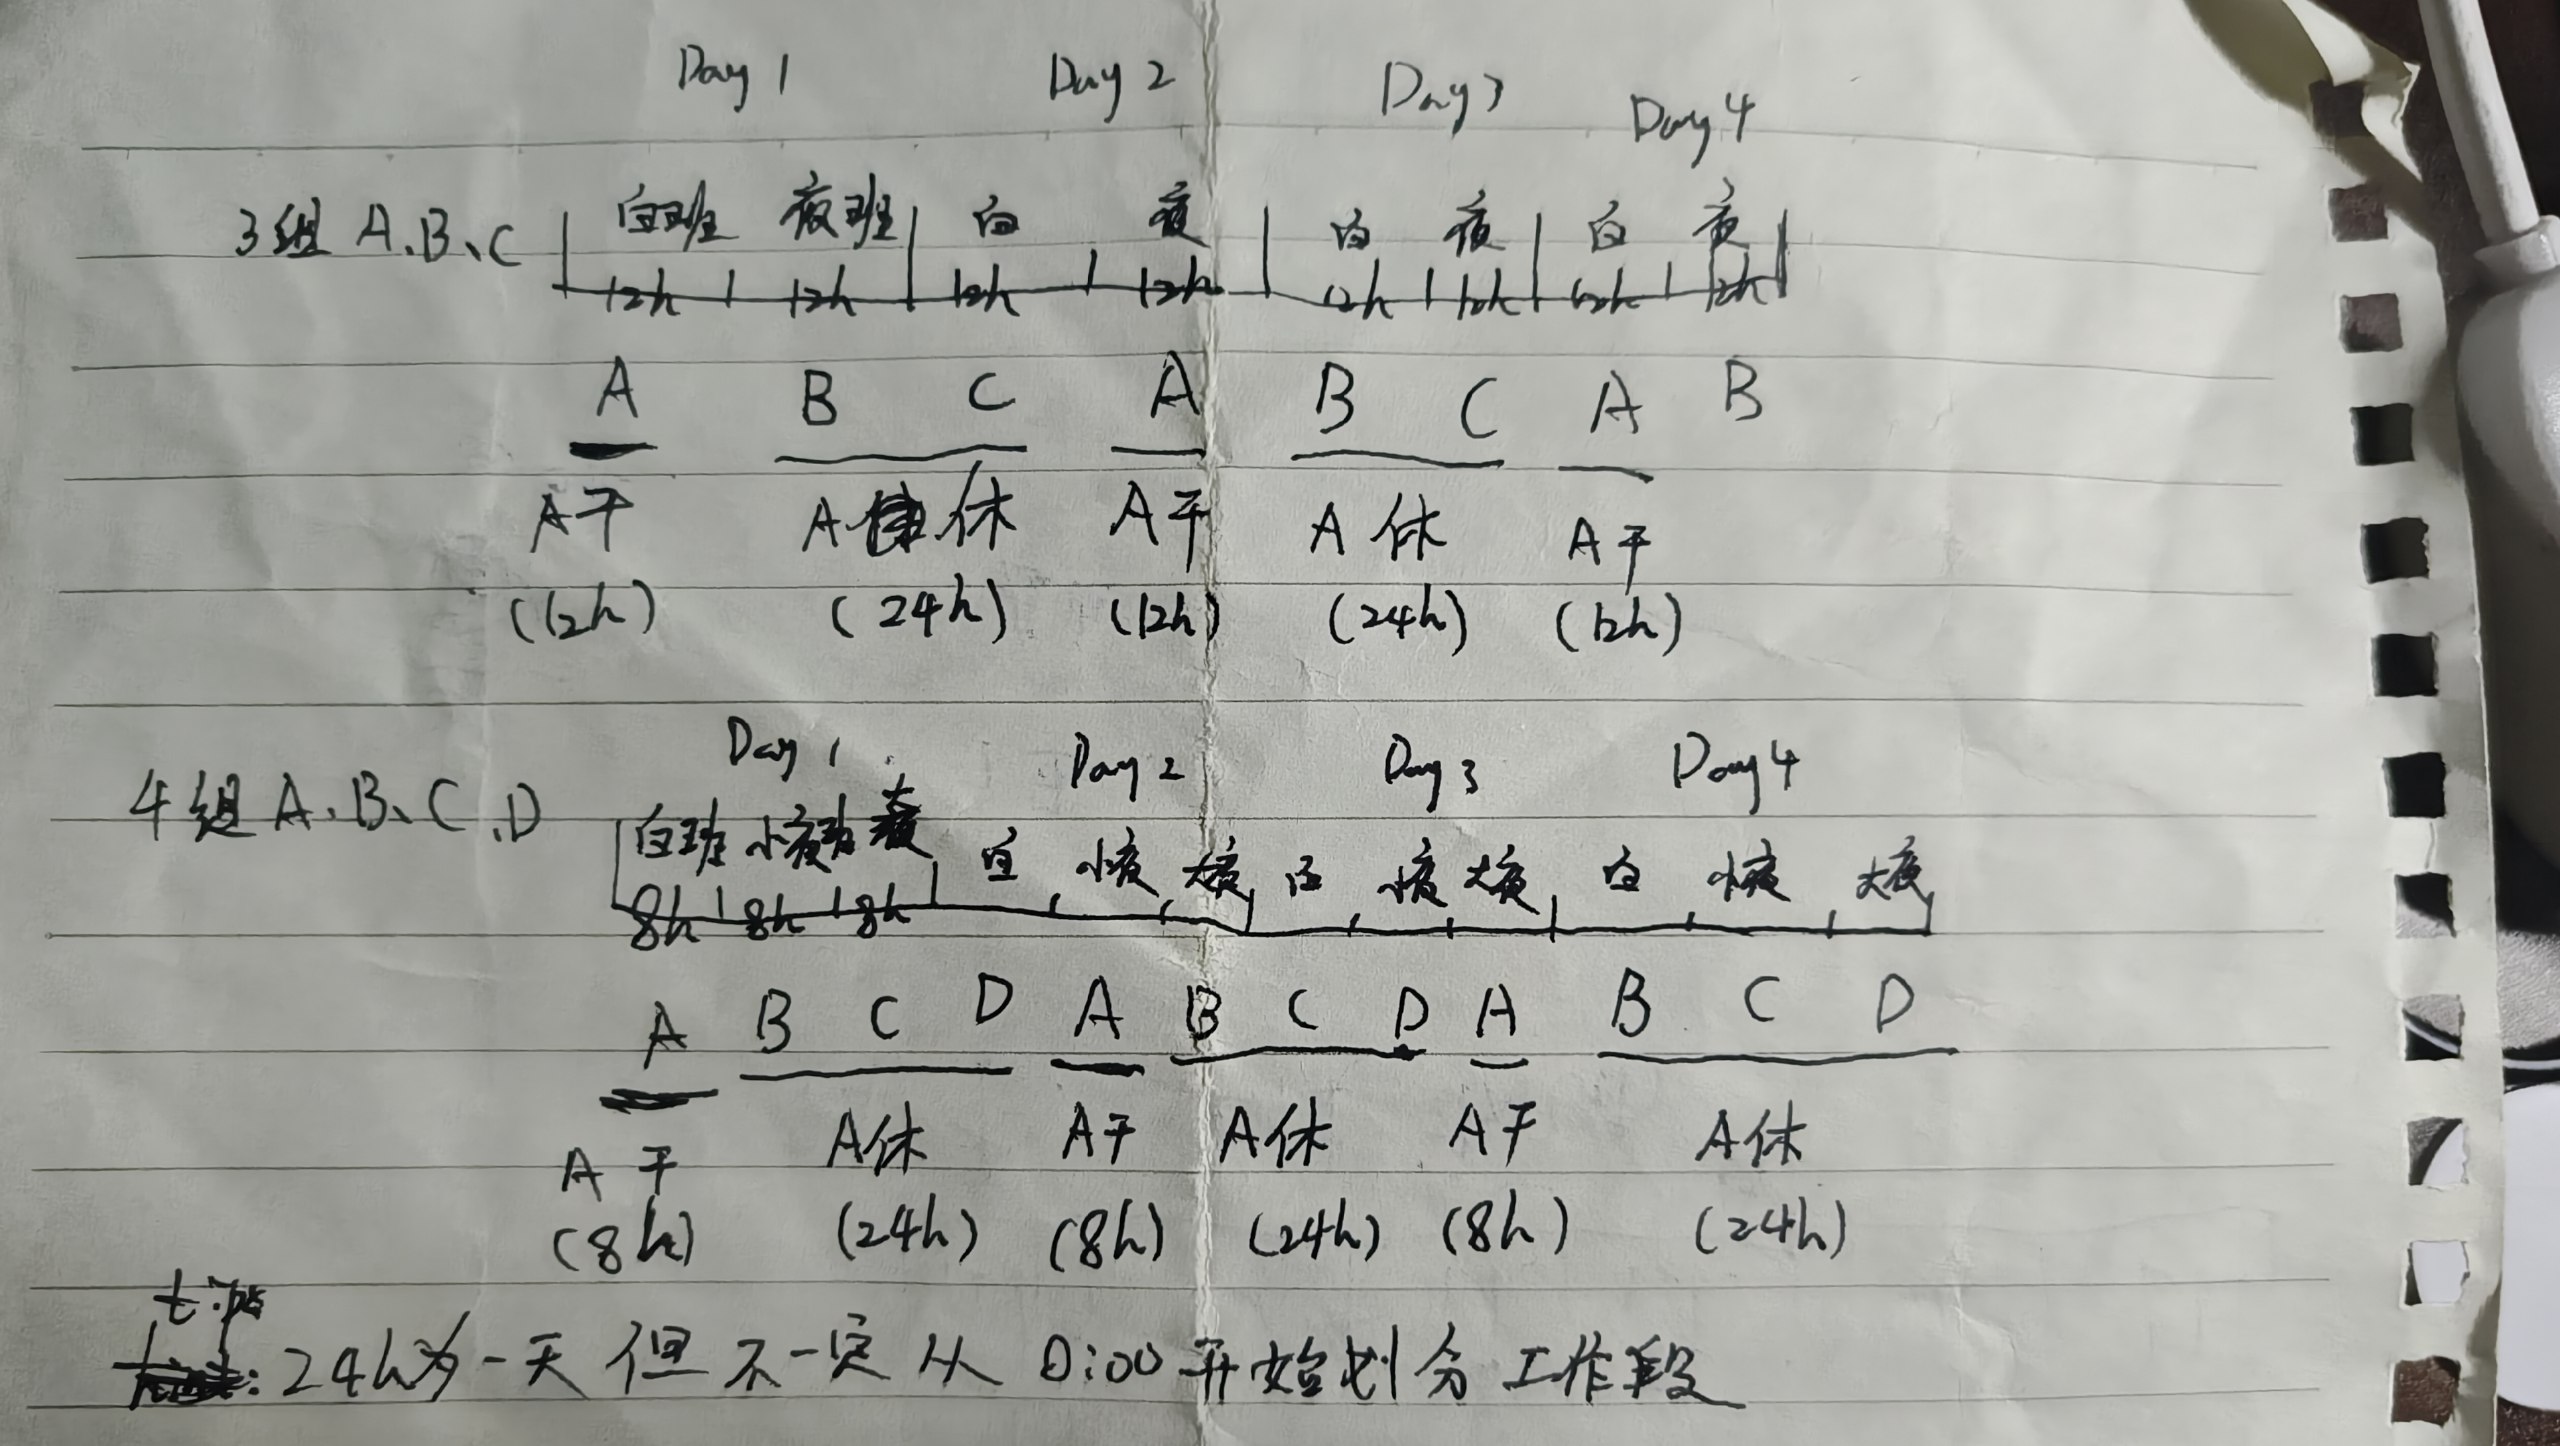 Day 1 Day 2 Day 3 Day 4
3组 A、B、C 白班 夜班 白 夜 白 夜 白 夜
12h 12h 12h 12h 12h 12h 12h 12h
A B C A B C A B
A干 A 休 A干 A 休 A干
(12h) (24h) (12h) (24h) (12h)
Day 1 Day 2 Day 3 Day 4
4组 A、B、C、D 白班 小夜班 大夜 白 小夜 大夜 白 小夜 大夜 白 小夜 大夜
8h 8h 8h
A B C D A B C D A B C D
A 干 A休 A干 A休 A干 A休
(8h) (24h) (8h) (24h) (8h) (24h)
: 24h为一天 但不一定从 0:00 开始划分工作段